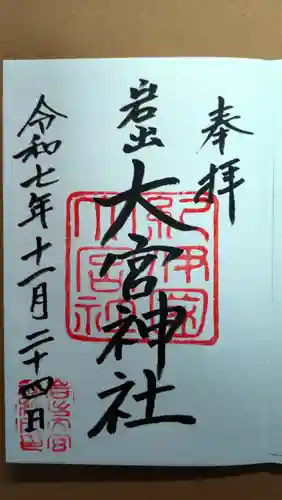 奉拝
岩出
大宮神社
令和七年十一月二十四日